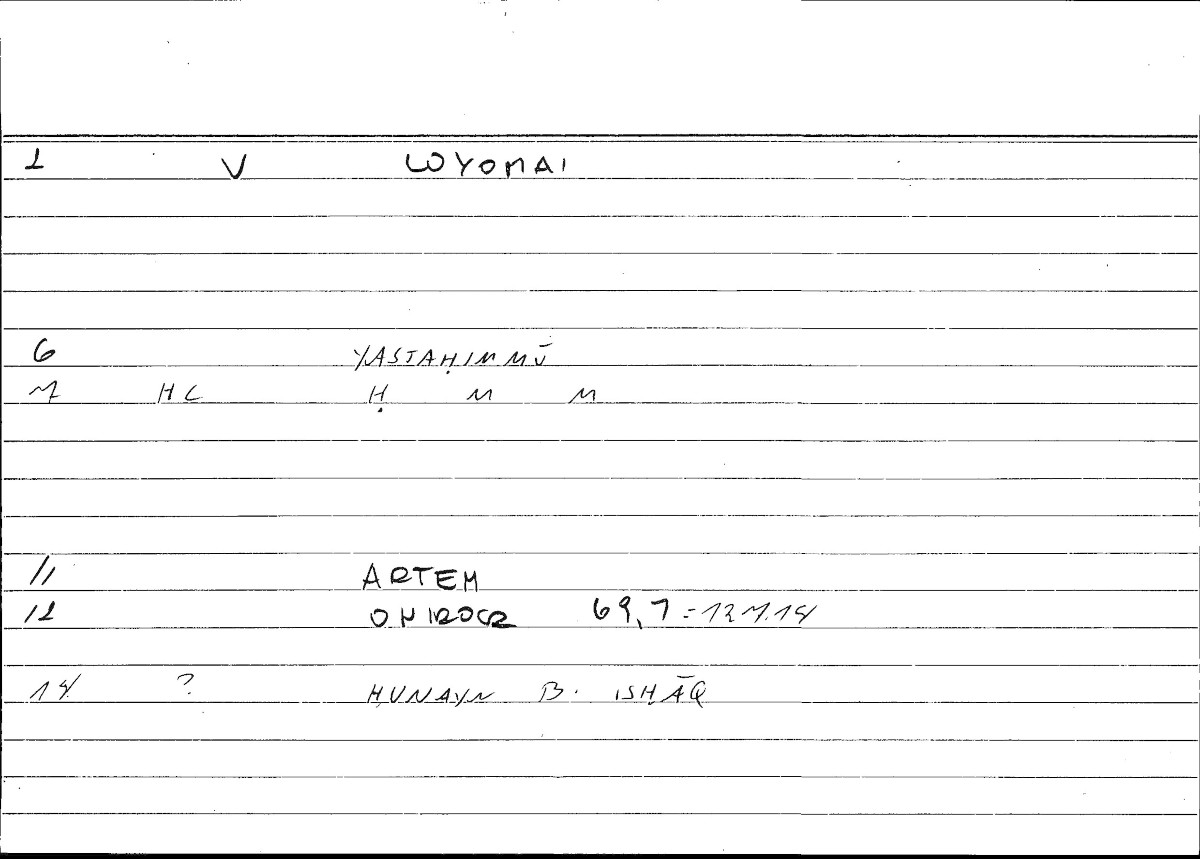 1 V LOYOMAI
6 YASTAḤIMMŪ
7 HC Ḥ M M
11 ARTEM
12 ONIROCR 69,7 = 127.14
14 ? ḤUNAYN B. ISḤĀQ